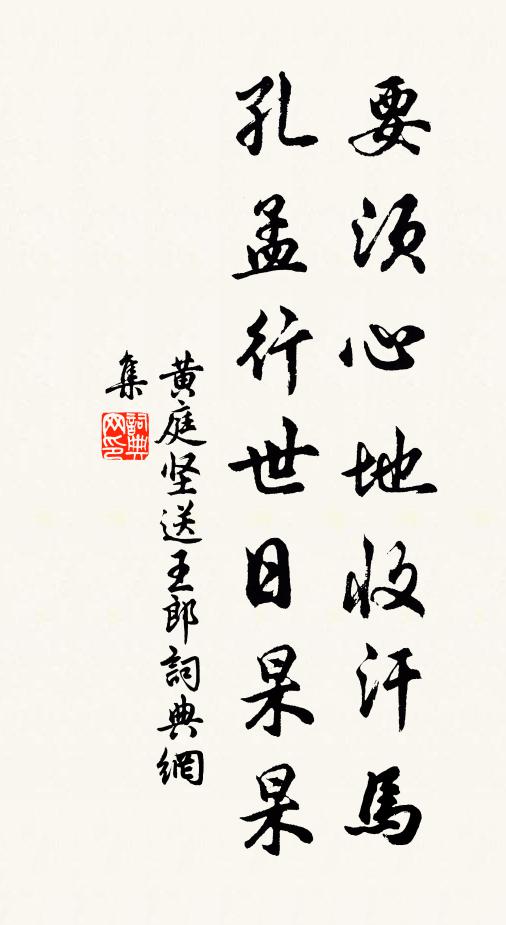 要须心地收汗馬
孔孟行世日杲杲
黄庭坚送王郎詞典網
集
詞典網印